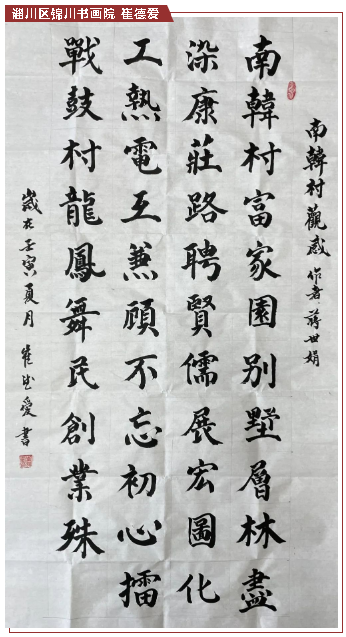 淄川区锦川书画院 崔德爱
南韓村觀感 作者 蔣世娟
南韓村富家園别墅層林盡
染康莊路聘賢儒展宏圖化
工熱電互兼顧不忘初心擂
戰鼓村龍鳳舞民創業殊
歲在壬寅夏月 崔德愛書